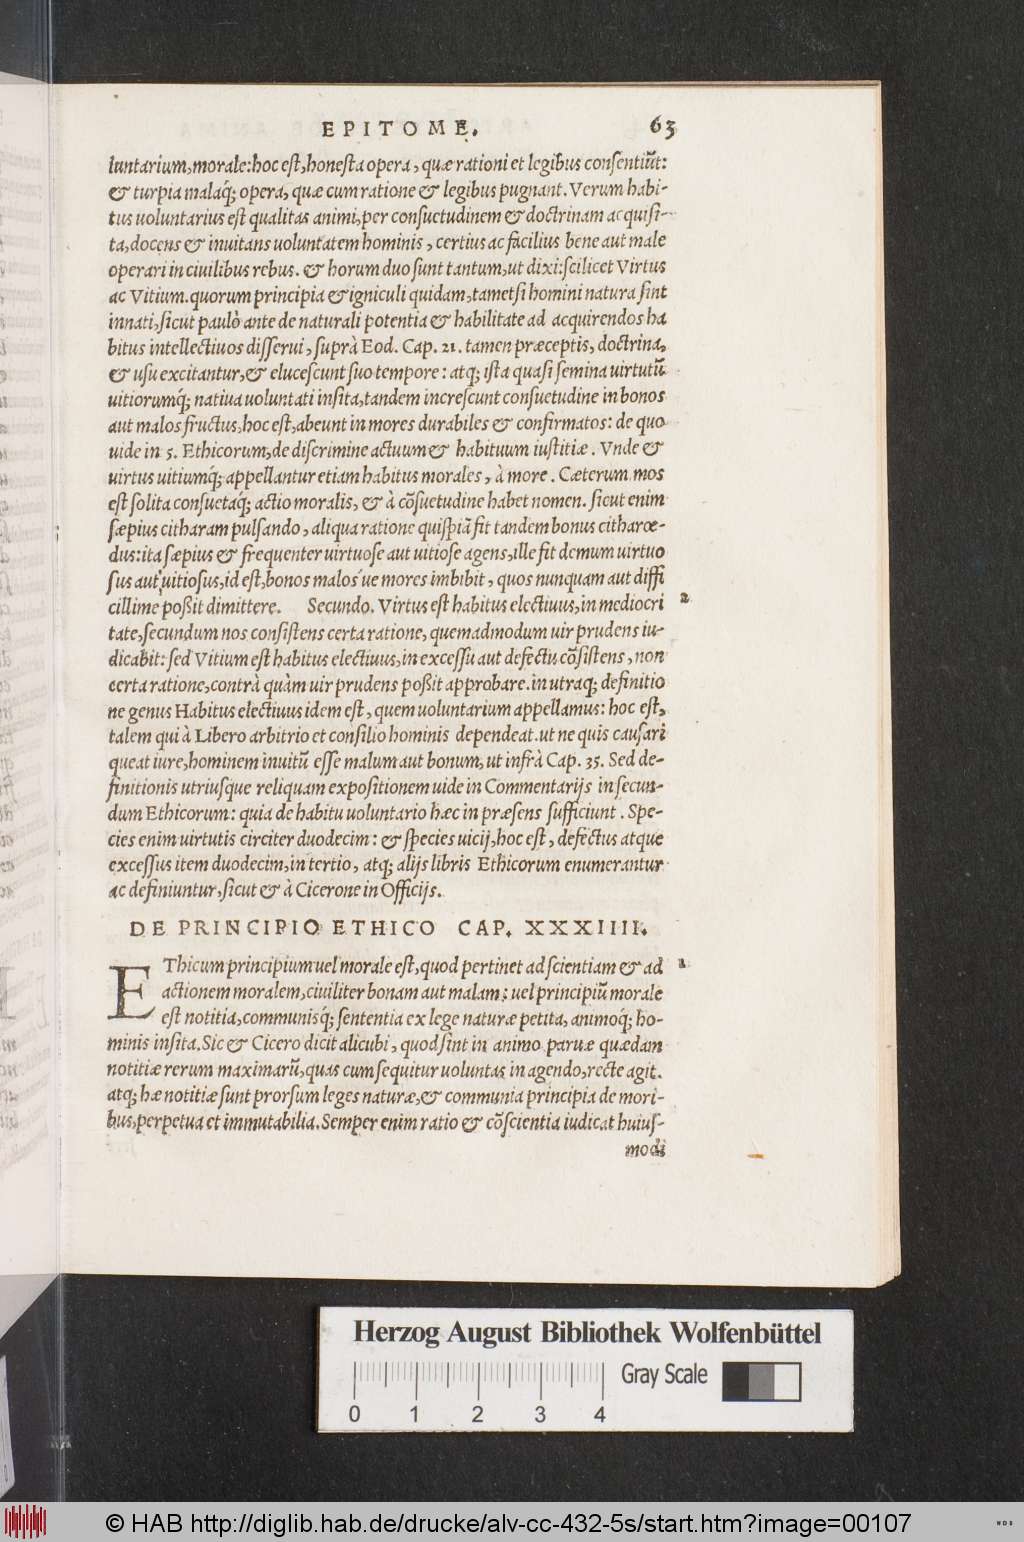 EPITOME. 63
luntarium, morale: hoc est, honesta opera, quæ rationi et legibus consentiūt:
& turpia malaq́; opera, quæ cum ratione & legibus pugnant. Verum habi-
tus uoluntarius est qualitas animi, per consuetudinem & doctrinam acquisi-
ta, docens & inuitans uoluntatem hominis, certius ac facilius bene aut male
operari in ciuilibus rebus. & horum duo sunt tantum, ut dixi: scilicet Virtus
ac Vitium. quorum principia & igniculi quidam, tametsi homini natura sint
innati, sicut paulò ante de naturali potentia & habilitate ad acquirendos ha
bitus intellectiuos disserui, suprà Eod. Cap. 21. tamen præceptis, doctrina,
& usu excitantur, & elucescunt suo tempore: atq; ista quasi semina uirtutū
uitiorumq́; natiua uoluntati insita, tandem increscunt consuetudine in bonos
aut malos fructus, hoc est, abeunt in mores durabiles & confirmatos: de quo
uide in 5. Ethicorum, de discrimine actuum & habituum iustitiæ. Vnde &
uirtus uitiumq́; appellantur etiam habitus morales, à more. Cæterum mos
est solita consuetaq́; actio moralis, & à cōsuetudine habet nomen. sicut enim
sæpius citharam pulsando, aliqua ratione quispiā fit tandem bonus citharœ-
dus: ita sæpius & frequenter uirtuose aut uitiose agens, ille fit demum uirtuo
sus aut uitiosus, id est, bonos malos'ue mores imbibit, quos nunquam aut diffi
cillime poßit dimittere. Secundo. Virtus est habitus electiuus, in mediocri 2
tate, secundum nos consistens certa ratione, quemadmodum uir prudens iu-
dicabit: sed Vitium est habitus electiuus, in excessu aut defectu cōsistens, non
certa ratione, contrà quàm uir prudens poßit approbare. in utraq; definitio
ne genus Habitus electiuus idem est, quem uoluntarium appellamus: hoc est,
talem qui à Libero arbitrio et consilio hominis dependeat. ut ne quis causari
queat iure, hominem inuitū esse malum aut bonum, ut infrà Cap. 35. Sed de-
finitionis utriusque reliquam expositionem uide in Commentarijs in secun-
dum Ethicorum: quia de habitu uoluntario hæc in præsens sufficiunt. Spe-
cies enim uirtutis circiter duodecim: & species uicij, hoc est, defectus atque
excessus item duodecim, in tertio, atq; alijs libris Ethicorum enumerantur
ac definiuntur, sicut & à Cicerone in Officijs.
DE PRINCIPIO ETHICO CAP. XXXIIII.
EThicum principium uel morale est, quod pertinet ad scientiam & ad 1
actionem moralem, ciuiliter bonam aut malam; uel principiū morale
est notitia, communisq́; sententia ex lege naturæ petita, animoq́; ho-
minis insita. Sic & Cicero dicit alicubi, quod sint in animo paruæ quædam
notitiæ rerum maximarū, quas cum sequitur uoluntas in agendo, recte agit.
atq; hæ notitiæ sunt prorsum leges naturæ, & communia principia de mori-
bus, perpetua et immutabilia. Semper enim ratio & cōscientia iudicat huius-
modi
Herzog August Bibliothek Wolfenbüttel
Gray Scale
0 1 2 3 4
© HAB http://diglib.hab.de/drucke/alv-cc-432-5s/start.htm?image=00107